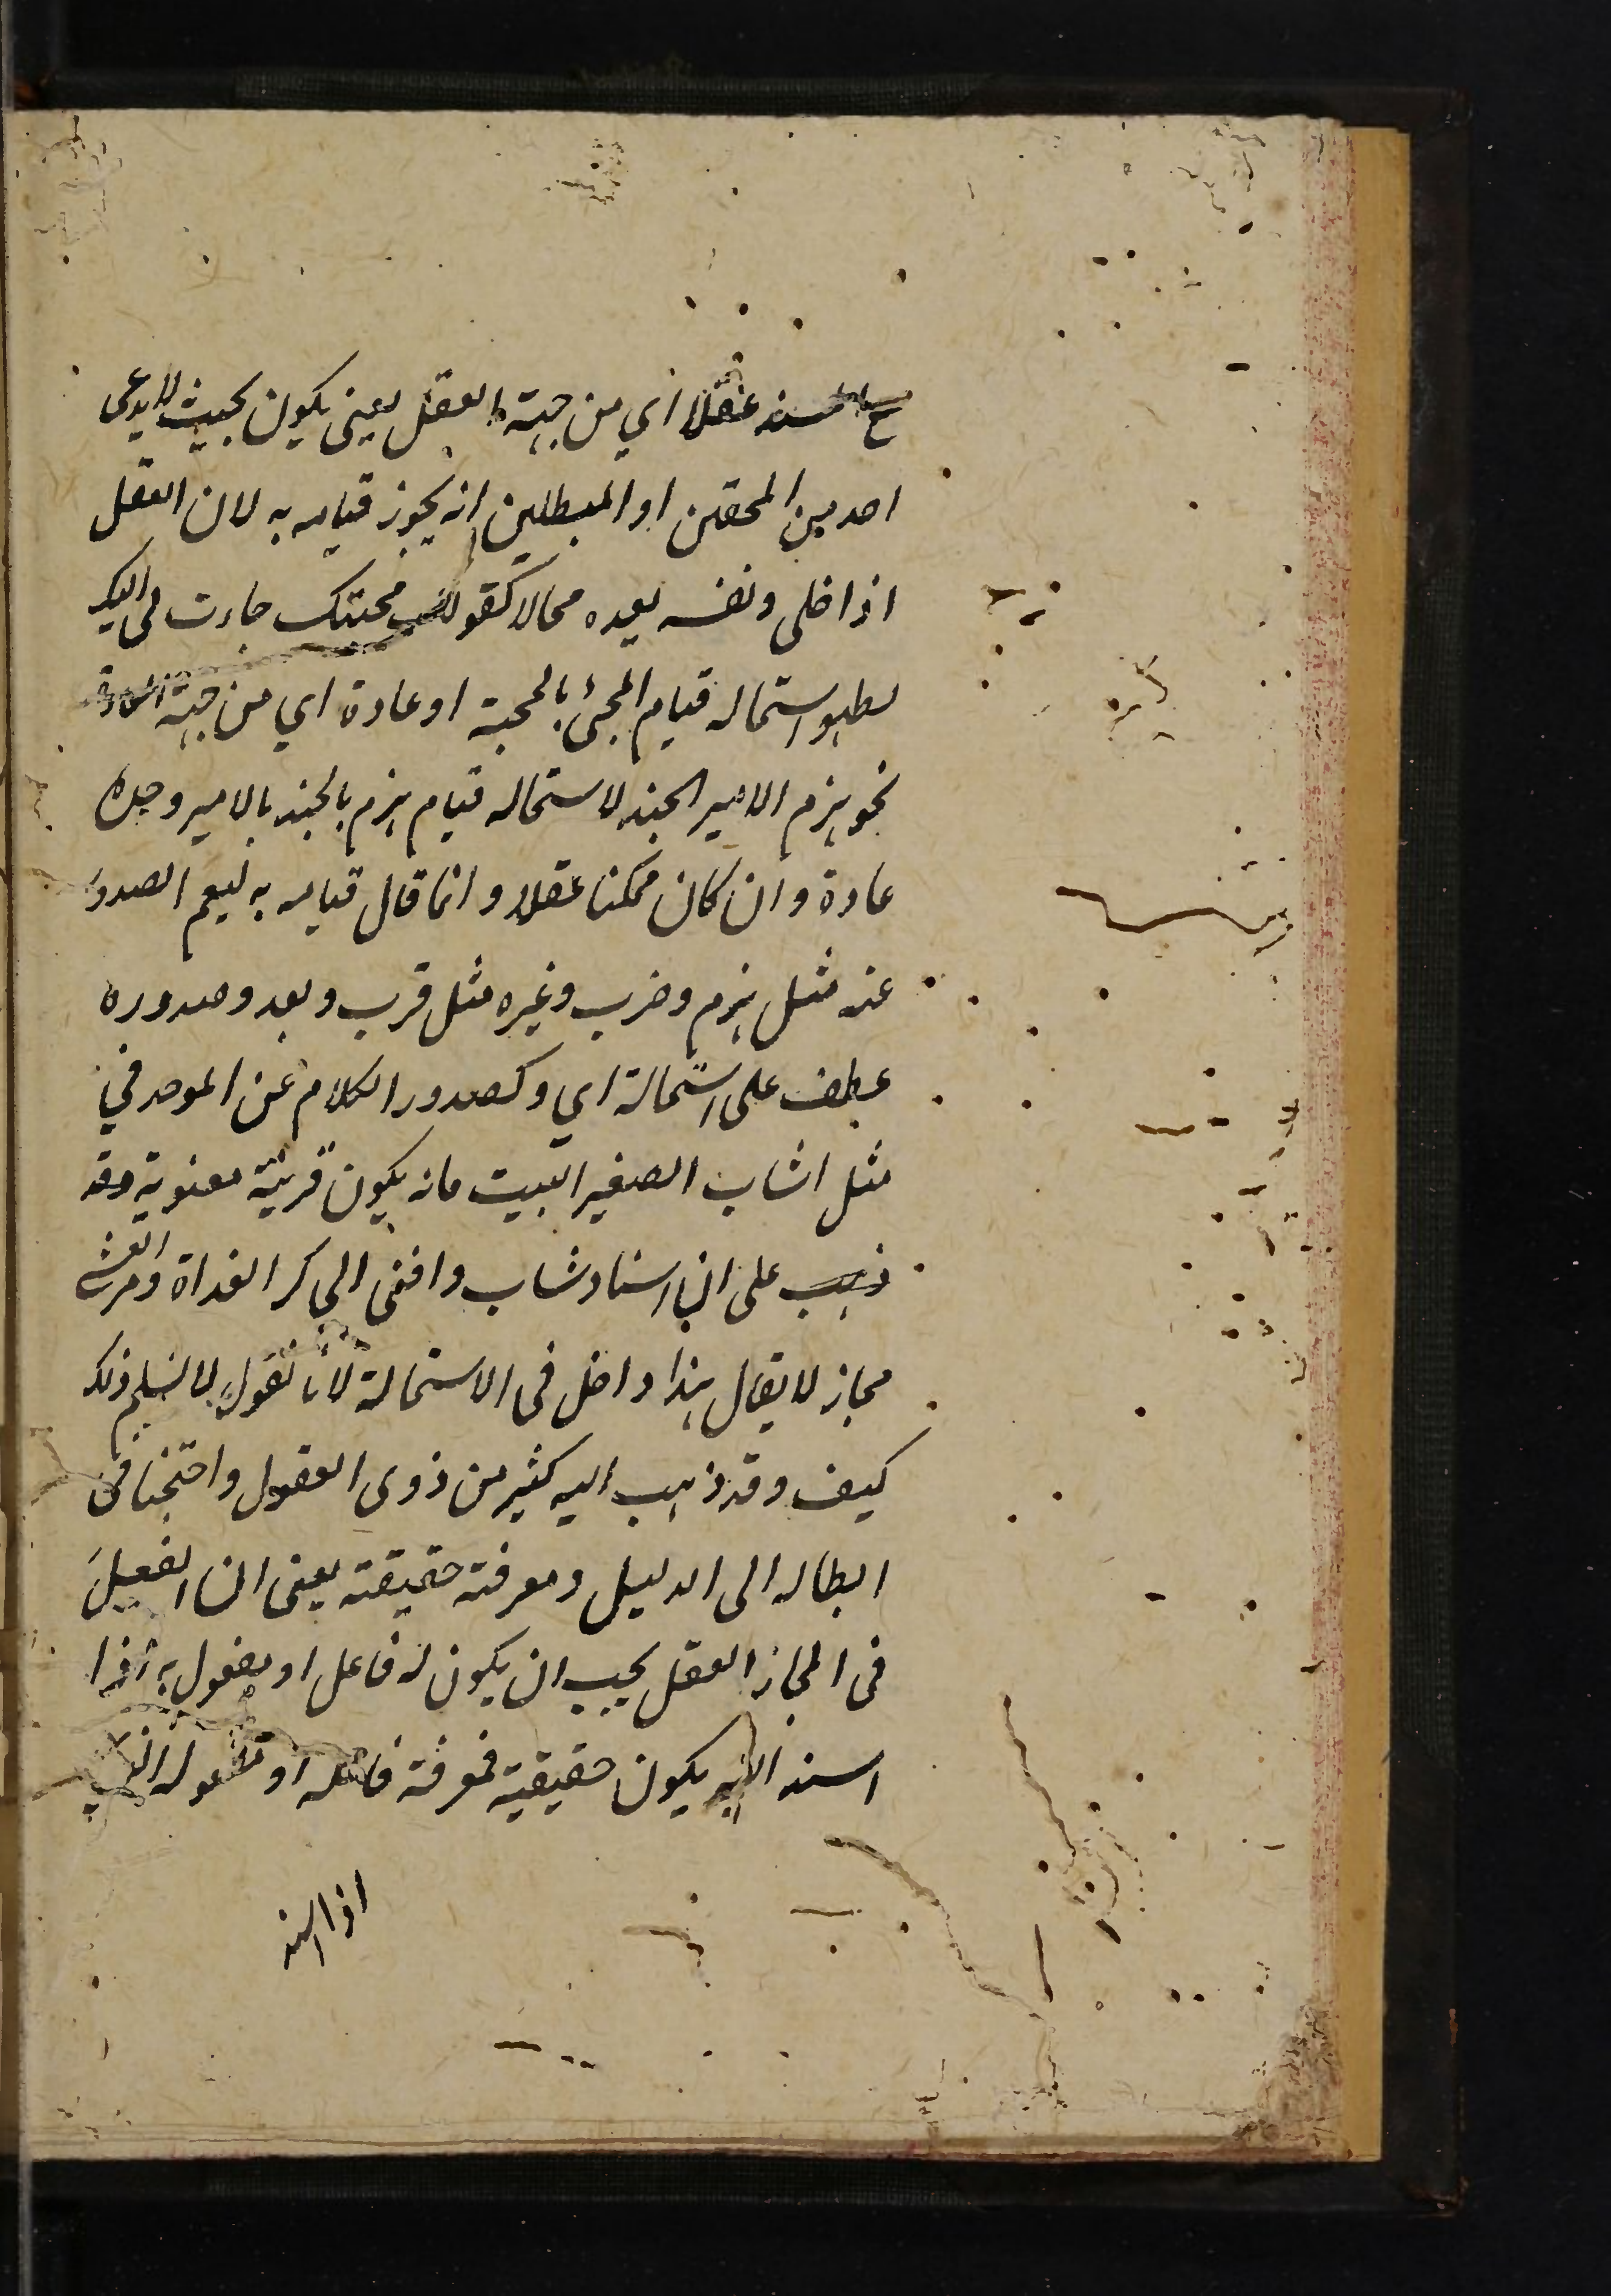 ع المسند عقلا اي من جهة العقل يعنى يكون بحيث لا يدعى
احد من المحقين او المبطلين انه يجوز قيامه به لان العقل
اذا خلى ونفسه يعده محالا كقولك محبتك جاءت بى اليك
لظهور استحالة قيام المجئ بالمحبة او عادة اي من جهة العادة
نحو هزم الامير الجند لاستحالة قيام هزم بالجند بالامير وحده
عادة وان كان ممكنا عقلا وانما قال قيامه به ليعم الصدور
عنه مثل هزم وضرب وغيره مثل قرب وبعد وصدوره
عطف على استحالة اي وكصدور الكلام عن الموحد في
مثل اشاب الصغير البيت فانه يكون قرينة معنوية وقد
ذهب على ان اسناد شاب وافنى الى كر الغداة ومر العشى
مجاز لا يقال هذا داخل فى الاستحالة لانا نقول لا نسلم ذلك
كيف وقد ذهب اليه كثير من ذوى العقول واحتجنا فى
ابطاله الى الدليل ومعرفة حقيقته يعنى ان الفعل
فى المجاز العقلى يجب ان يكون له فاعل او مفعول به اذا
اسند اليه يكون حقيقية فمعرفة فاعله او مفعوله الذي
اذا اسند